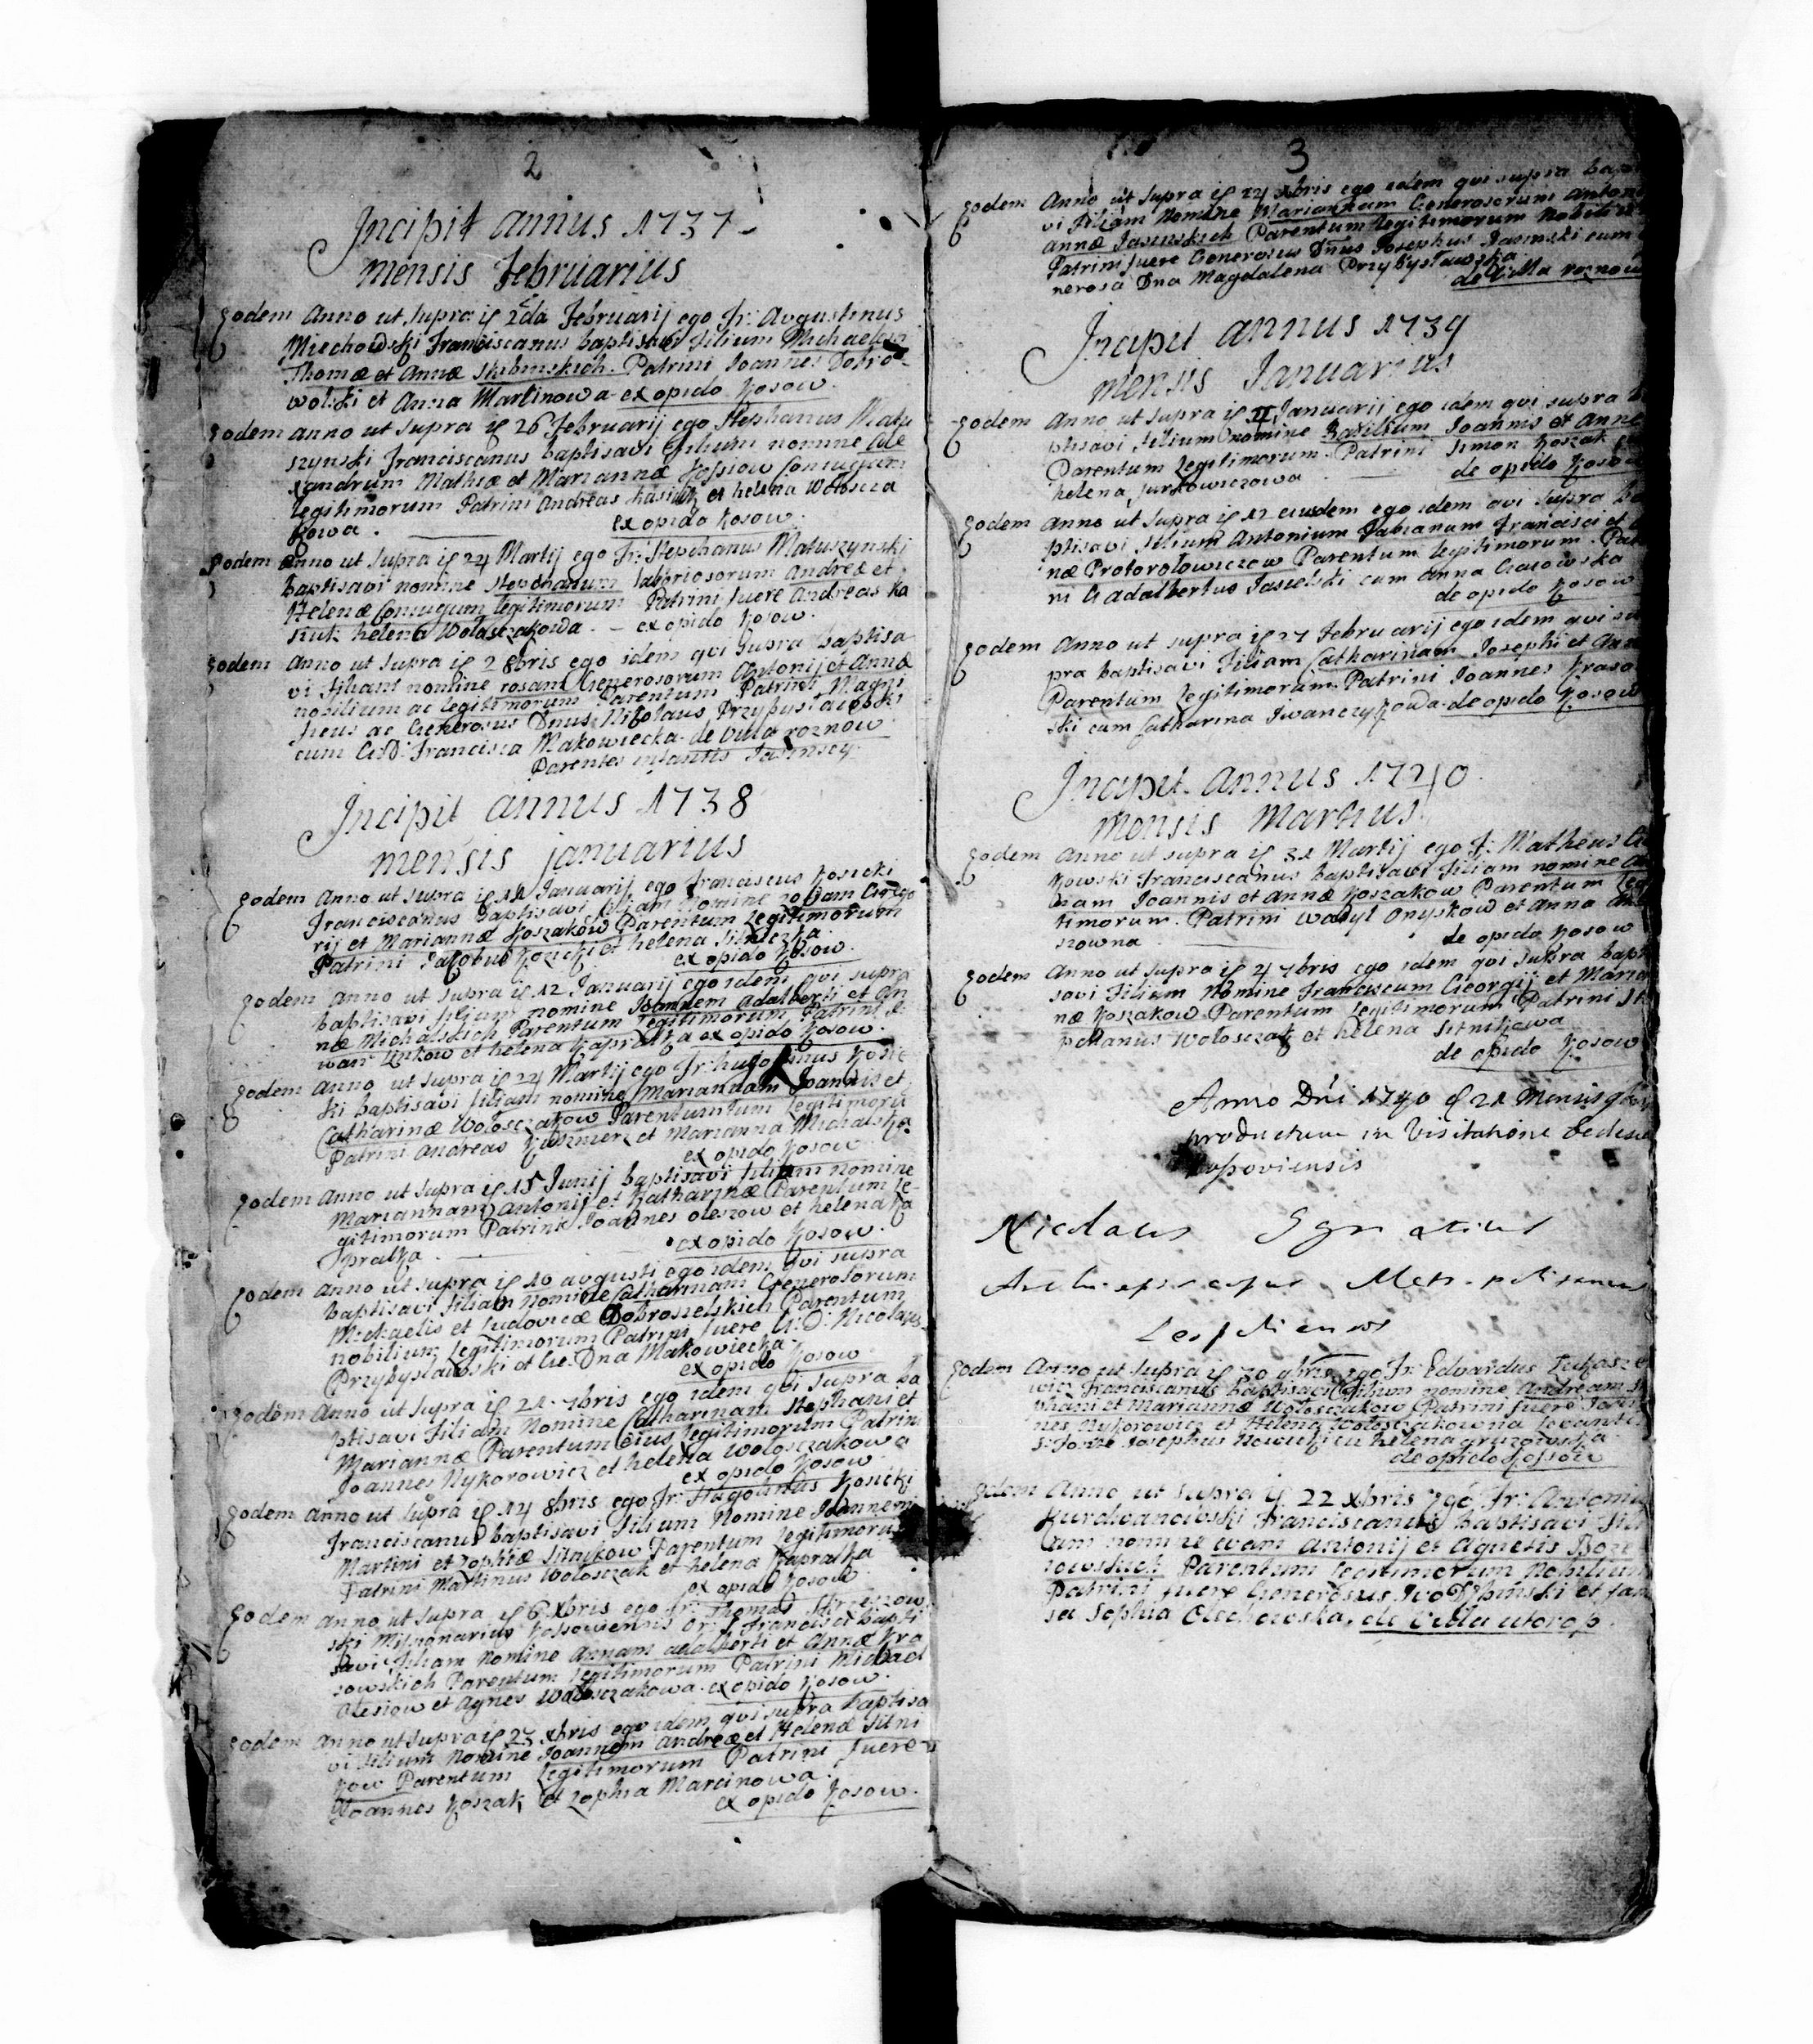 2
Incipit annus 1737
mensis Februarius
Eodem Anno ut supra is 2da Februarij ego Fr: Augustinus
Miechowski Franciscanus baptisavi Filium Michaelem
Thomæ et Annæ Patrini Joannes Dobro-
wolski et Anna Martinowa ex opido Kosow.
Eodem anno ut supra is 26 Februarij ego Stephanus Matu
szynski Franciscanus baptisavi Filium nomine Ale
xandrum Mathiæ et Mariannæ Kossiow Conjugum
legitimorum Patrini Andreas et helena Wołoscza
kowa. ex opido Kosow.
Eodem Anno ut supra is 24 Martij ego Fr: Stephanus Matuszynski
baptisavi nomine Stephanum laboriosorum Andreæ et
Helenæ Conjugum legitimorum Patrini fuere Andreas Ka
helena Wołosczakowa. – ex opido Kosow.
Eodem Anno ut supra is 2 8bris ego idem qui supra baptisa
vi Filiam nomine rosam Generosorum Antonij et Annæ
nobilium ac legitimorum Parentum Patrini Magni
ficus ac Generosus Dnus Nikolaus Przybysławski
cum G:D: Francisca Makowiecka de Villa roznow
Parentes infantis Jasinscy.
Incipit annus 1738
mensis januarius
Eodem Anno ut supra is Januarij ego Franciscus Kosicki
Franciscanus baptisavi filiam nomine
rij et Mariannæ Koszakow Parentum legitimorum
Patrini Jacobus Kozicki et helena
ex opido Kosow.
Eodem Anno ut supra is 12 Januarij ego idem qui supra
baptisavi filium nomine Joannem Adalberti et An
næ Michalskich Parentum legitimorum Patrini
et helena Kapralka ex opido Kosow.
Eodem Anno ut supra is 24 Martij ego Fr: hugolinus Kosic
ki baptisavi filiam nomine Mariannam Joannis et
Catharinæ Wołosczakow Parentum legitimorum
Patrini Andreas et Marianna Michalska
ex opido Kosow
Eodem Anno ut supra is 15 Junij baptisavi filiam nomine
Mariannam Antonij et Katharinæ Parentum le-
gitimorum Patrini Joannes oleszow et helena Ka
pralka. ex opido Kosow.
Eodem Anno ut supra is 10 augusti ego idem qui supra
baptisavi filiam nomine Catharinam Generosorum
Michaelis et Ludovicæ Dobrosielskich Parentum
nobilium legitimorum Patrini fuere G:D: Nicolaus
Przybysławski et Ge: Dna Makowiecka.
ex opido Kosow.
Eodem Anno ut supra is 21 7bris ego idem qui supra ba
ptisavi Filiam nomine Catharinam Stephani et
Mariannæ Parentum eius legitimorum Patrini
Joannes Nykorowicz et helena Wołosczakowa
ex opido Kosow
Eodem Anno ut supra is 14 8bris ego Fr: Hugolinus Kosicki
Franciscanus baptisavi Filium nomine Joannem
Martini et Zophiæ Sitnikow Parentum legitimorum
Patrini Martinus Wołosczak et helena Kapralka
ex opido Kosow.
Eodem anno ut supra is 6 Xbris ego Fr: Thomas
ski Missionarius Kossowiensis Or: S. Francisci bapti
savi Filiam nomine Annam adalberti et Annæ Kra
sowskich Parentum legitimorum Patrini Michael
Olesiow et Agnes Wołosczakowa. ex opido Kosow.
Eodem Anno ut supra is 27 Xbris ego idem qui supra baptisa
vi Filium nomine Joannem Andreæ et Helenæ Sitni
kow Parentum legitimorum Patrini fuere
Joannes Koszak et Zophia Marcinowa.
ex opido Kosow.
3
Eodem Anno ut supra is 24 Xbris ego idem qui supra bap
vi Filiam nomine Mariannam Generosorum Anton
annæ Jasinskich Parentum legitimorum Nobiliu
Patrini fuere Generosus Dnus Josephus Jasinski cum
nerosa Dna Magdalena Przybysławska.
de Villa roznow
Incipit annus 1739
mensis Januarius
Eodem Anno ut supra is II Januarij ego idem qui supra b
ptisavi Filium nomine Basilium Joannis et Annæ
Parentum legitimorum. Patrini Simon Koszak
helena Jurkowiczowa. de opido Kosow
Eodem Anno ut supra is 12 eiusdem ego idem qui supra ba
ptisavi Filium Antonium Fabianum Francisci et
næ Protorotowiczow Parentum legitimorum. Pat
ni Gadalbertus Jasielski cum anna
de opido Kosow
Eodem Anno ut supra is 27 Februarij ego idem qui su
pra baptisavi Filiam Catharinam Josephi et Ann
Parentum legitimorum. Patrini Joannes Kraso
ski cum Catharina Iwanczykowa. de opido Kosow
Incipit annus 1740
mensis Martius.
Eodem Anno ut supra is 31 Martij ego F: Matheus
kowski Franciscanus baptisavi Filiam nomine
nam Joannis et Annæ Koszakow Parentum leg
timorum. Patrini Wasyl Onyskow et Anna
szowna de opido Kosow
Eodem Anno ut supra is 4 7bris ego idem qui supra bapti
savi Filium nomine Franciscum Georgij et Maria
næ Koszakow Parentum legitimorum Patrini St
phanus Wołosczak et helena Sitnikowa
de opido Kosow
Anno Dni 1740 d 21 Mensis
productum in Visitatione Ecclesiæ
Nicolaus Ignatius
Archi eppiscopus Metropolitanus
Leopoliensis
Eodem Anno ut supra is 30 9bris ego Fr: Edvardus Łukasze
wicz Franciscanus baptisavi Filium nomine Andream St
phani et Mariannæ Wołosczakow Patrini fuere Joan
nes Nykorowicz et Helena Wołosczakowna
Josephus Nowicki cu helena gruzowska.
de opido Kossow
Eodem Anno ut supra is 22 Xbris ego Fr: Antonius
Kurdwanowski Franciscanus baptisavi Fili
am nomine evam Antonij et Agnetis Boze
Parentum legitimorum Nobilium
patrini fuere Generosus
Sophia Olechowska, de Villa utorop.